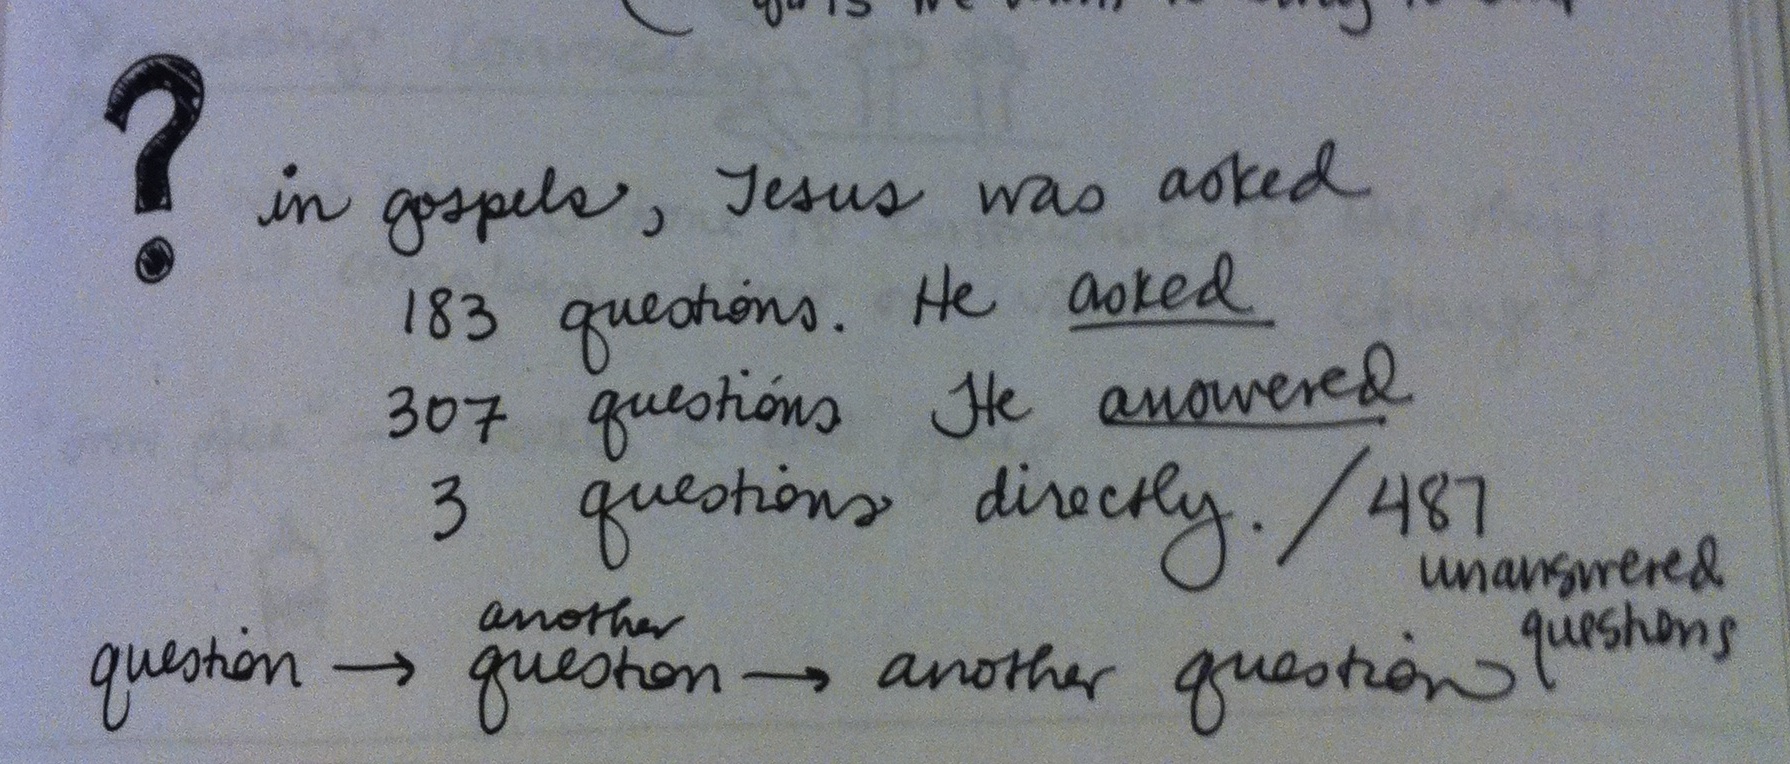 ?
in gospels, Jesus was asked
183 questions. He asked
307 questions He answered
3 questions directly. / 487
unanswered
questions
another
question → question → another question